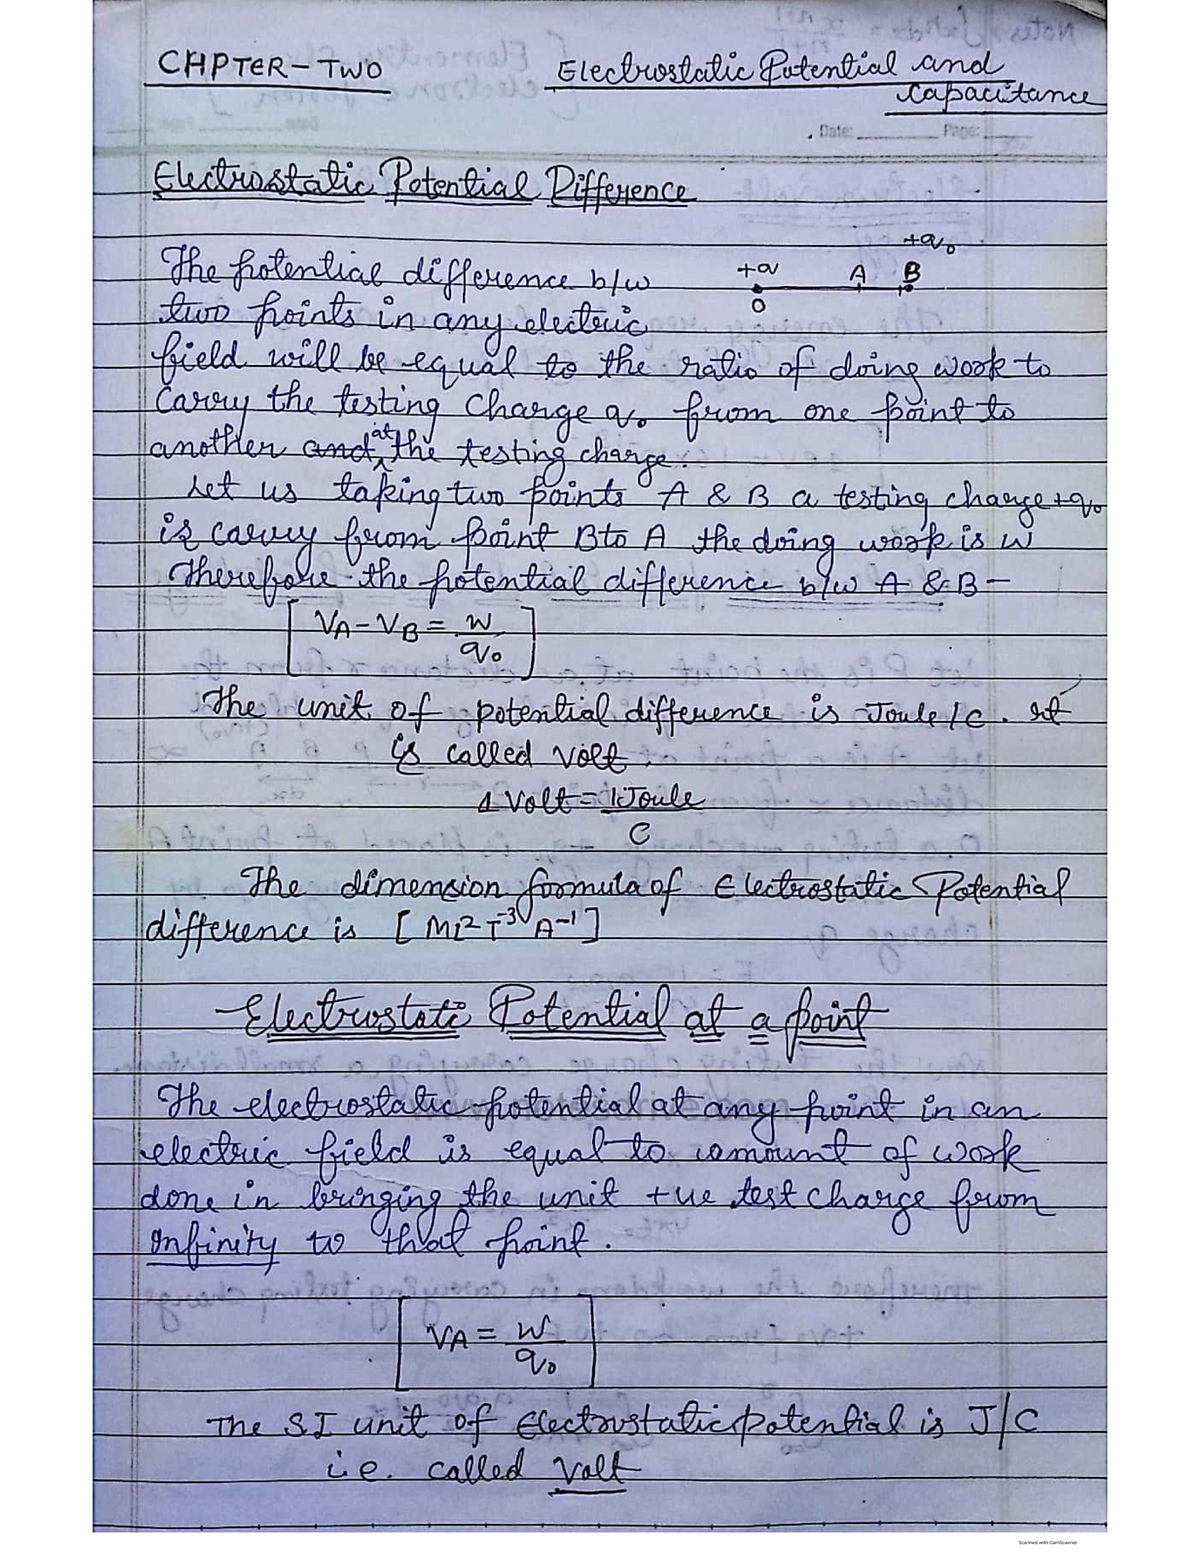 CHPTER-TWO Electrostatic Potential and
Capacitance
Date: Page:
Electrostatic Potential Difference
+q₀
The potential difference b/w +q A B
two points in any electric O
field will be equal to the ratio of doing work to
carry the testing charge q₀ from one point to
another and at the testing charge.
Let us taking two points A & B a testing charge +q₀
is carry from point B to A the doing work is W
Therefore the potential difference b/w A & B -
[VA - VB = W/q₀]
The unit of potential difference is Joule/C. It
is called volt.
1 Volt = 1 Joule/C
The dimension formula of Electrostatic Potential
difference is [ML² T⁻³ A⁻¹]
Electrostatic Potential at a point
The electrostatic potential at any point in an
electric field is equal to amount of work
done in bringing the unit +ve test charge from
Infinity to that point.
[VA = W/q₀]
The SI unit of Electrostatic potential is J/C
i.e. called Volt
Scanned with CamScanner